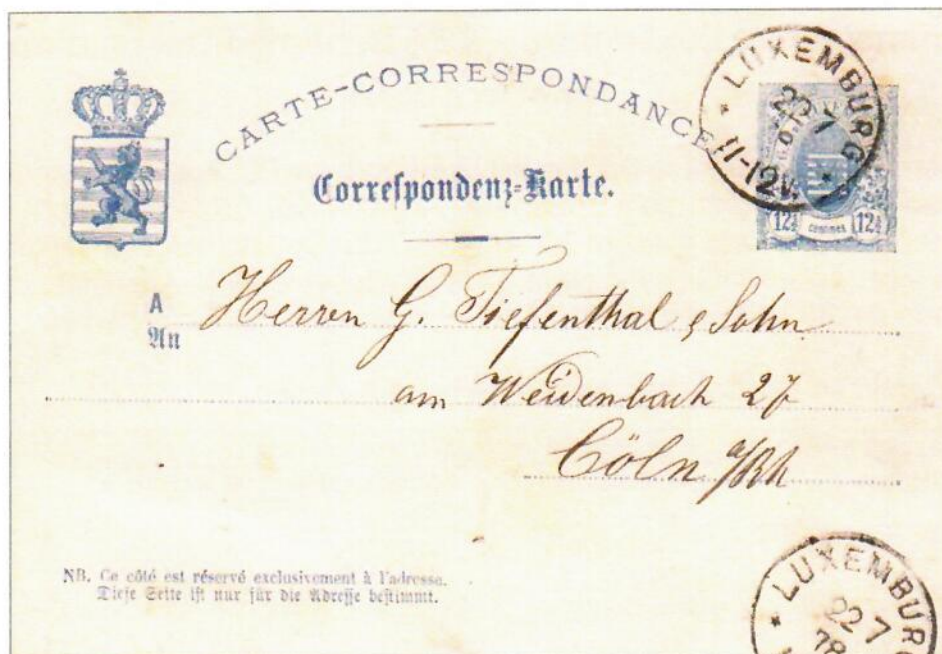 CARTE-CORRESPONDANCE
Correspondenz-Karte.
* LUXEMBURG *
22 7
11-12V.
12½ CENTIMES 12½
A Herren G. Tiefenthal & Sohn
An
am Weidenbach 27
Cöln a/Rh
NB. Ce côté est réservé exclusivement à l'adresse.
Diese Seite ist nur für die Adresse bestimmt.
* LUXEMBURG
22 7
78